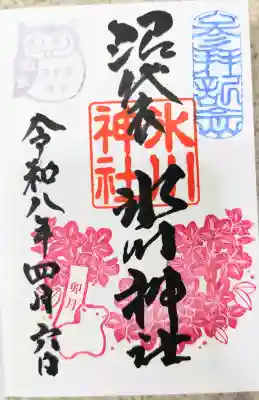 参拝記念
沼袋 氷川神社
氷川
神社
卯月
令和八年四月六日